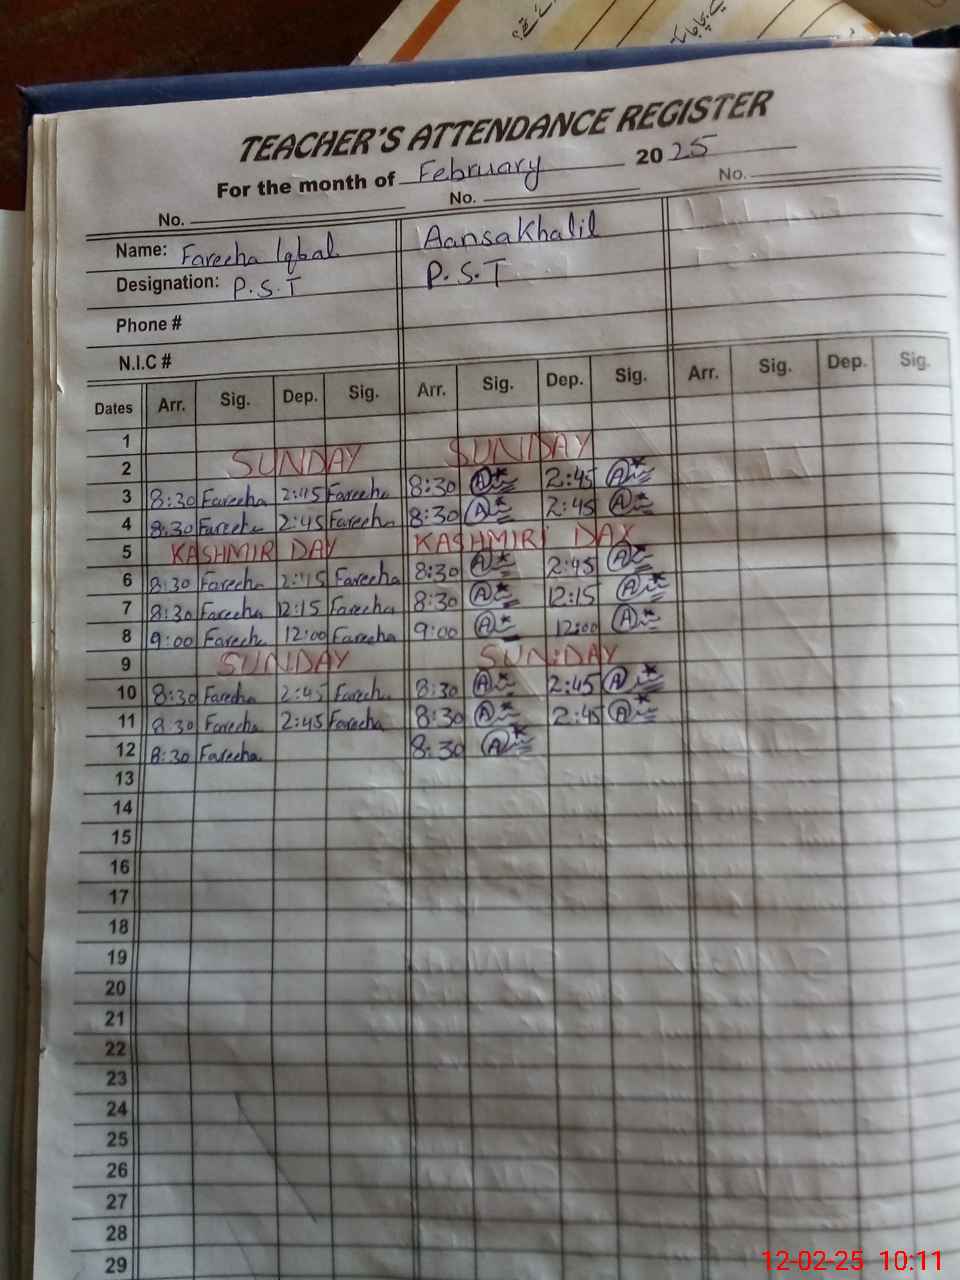 TEACHER'S ATTENDANCE REGISTER
For the month of February 2025
No. No. No.
Name: Fareeha Iqbal Aansa Khalil
Designation: P.S.T P.S.T
Phone #
N.I.C #
Dates Arr. Sig. Dep. Sig. Arr. Sig. Dep. Sig. Arr. Sig. Dep. Sig.
1
2 SUNDAY SUNDAY
3 8:30 Fareeha 2:45 Fareeha 8:30 A 2:45 A
4 8:30 Fareeha 2:45 Fareeha 8:30 A 2:45 A
5 KASHMIR DAY KASHMIRI DAY
6 8:30 Fareeha 2:45 Fareeha 8:30 A 2:45 A
7 8:30 Fareeha 12:15 Fareeha 8:30 A 12:15 A
8 9:00 Fareeha 12:00 Fareeha 9:00 A 12:00 A
9 SUNDAY SUNDAY
10 8:30 Fareeha 2:45 Fareeha 8:30 A 2:45 A
11 8:30 Fareeha 2:45 Fareeha 8:30 A 2:45 A
12 8:30 Fareeha 8:30 A
13
14
15
16
17
18
19
20
21
22
23
24
25
26
27
28
29
12-02-25 10:11